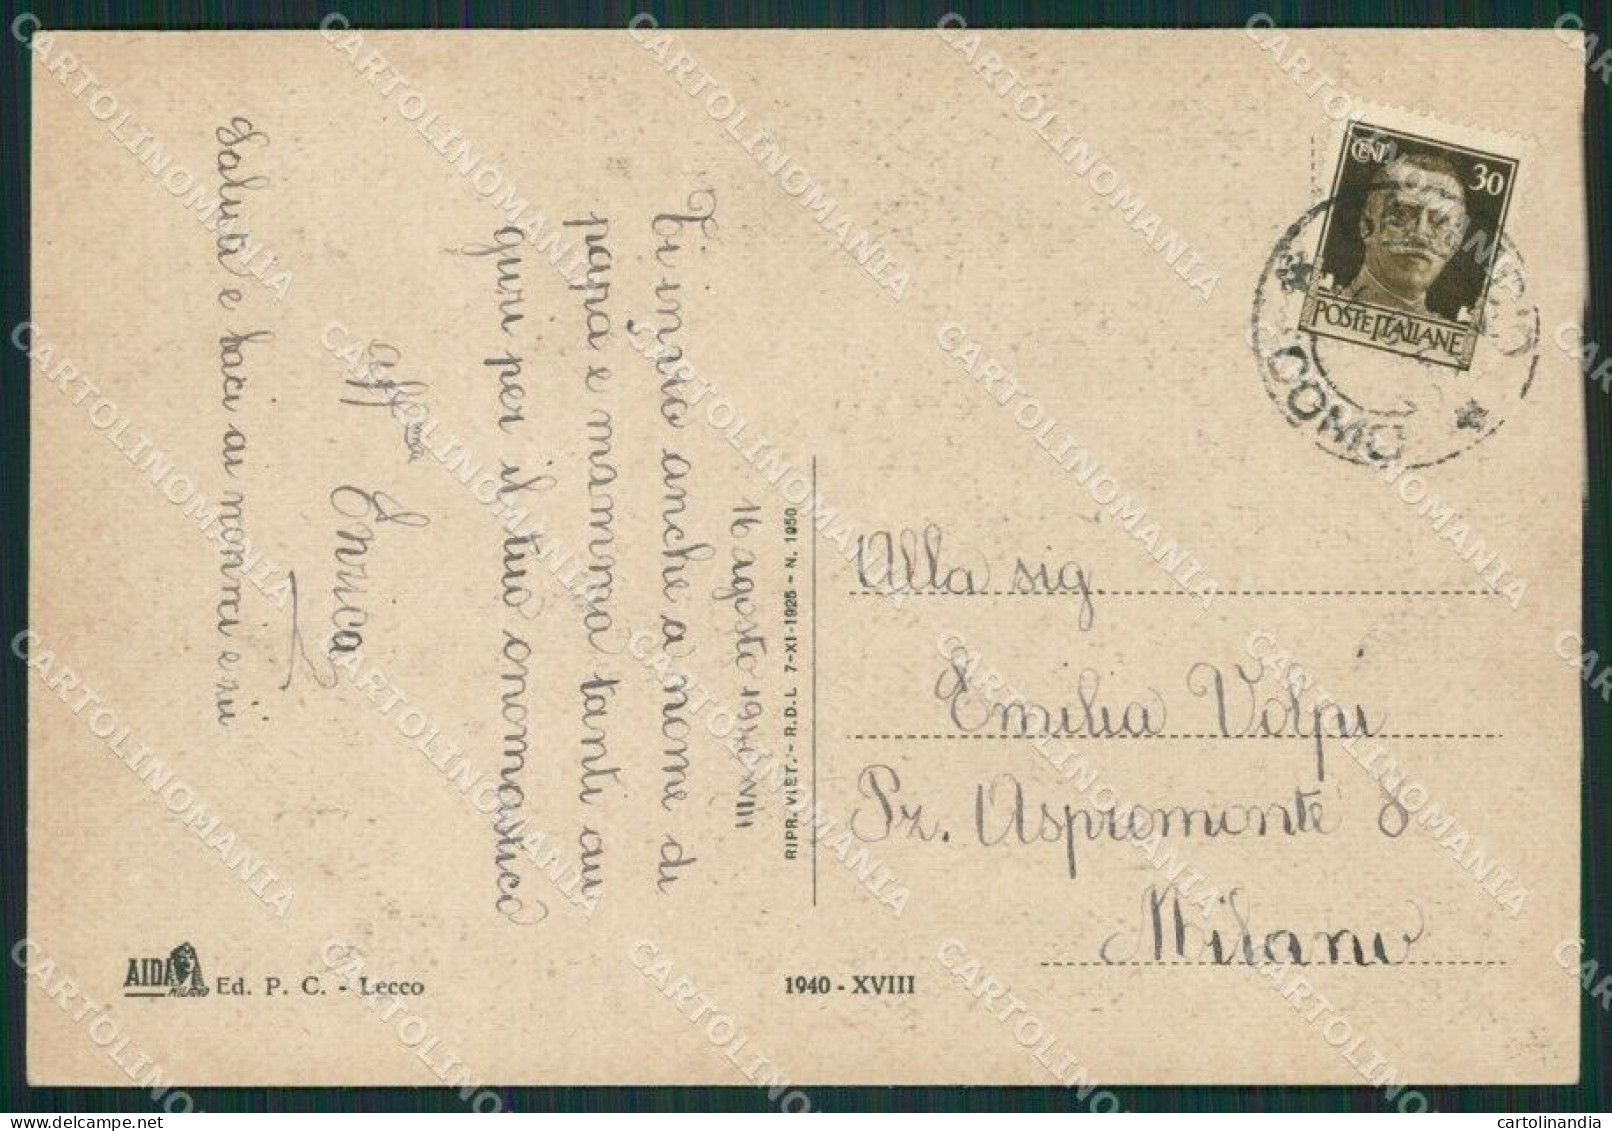 16 agosto 1940 XVIII
Ti invio anche a nome di
papa e mamma tanti au
guri per il tuo onomastico
aff.ma
Enrica
Saluti e baci ai nonni e zii
RIPR. VIET. - R.D.L. 7-XI-1925 - N. 1950
CENT. 30
POSTE ITALIANE
COMO
Alla sig.
Emilia Volpi
Pz. Aspromonte 8
Milano
AIDA
MILANO
Ed. P. C. - Lecco
1940 - XVIII
CARTOLINOMANIA
cartolinandia